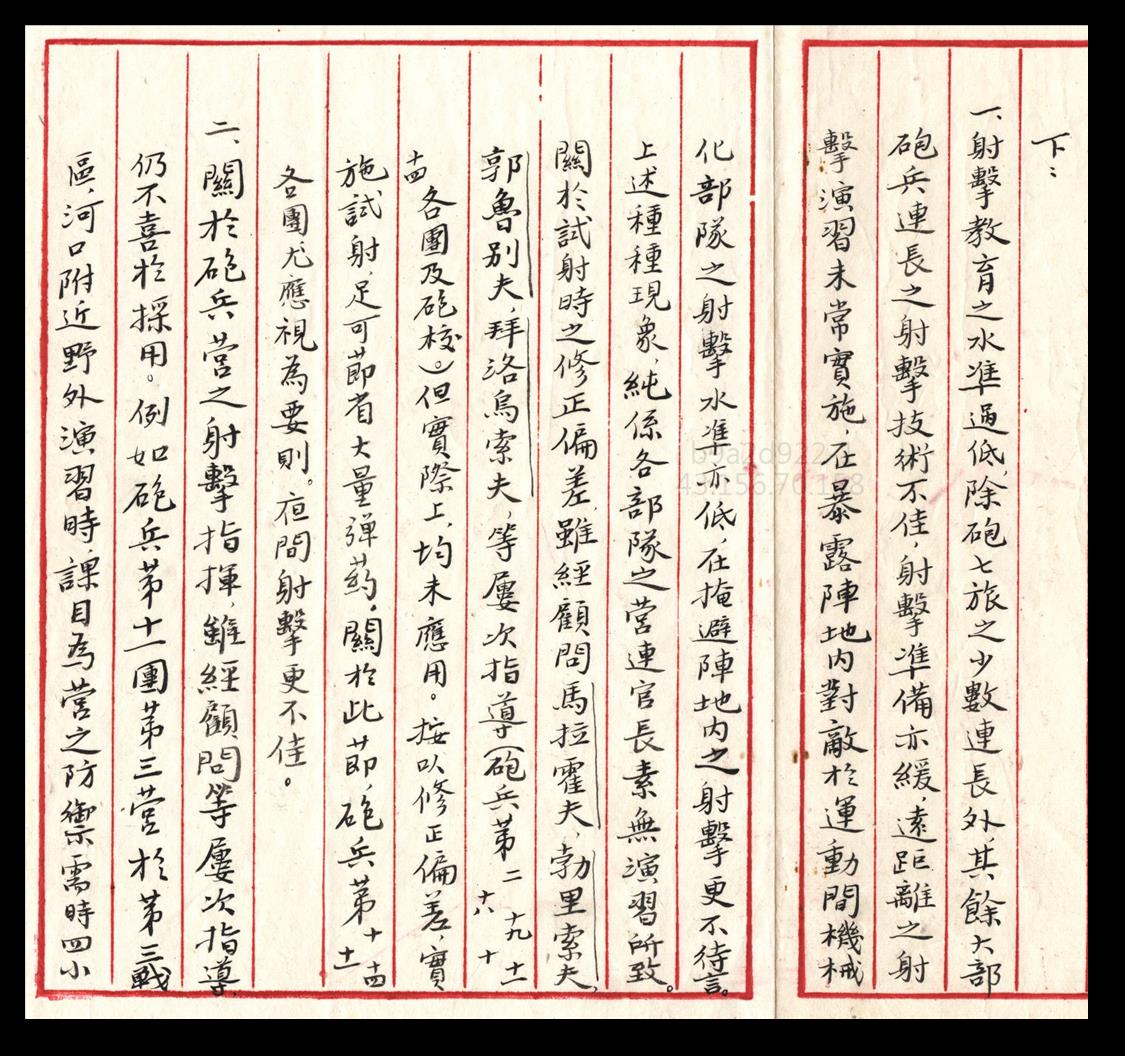 下：
一、射擊教育之水準過低，除砲七旅之少數連長外，其餘大部
砲兵連長之射擊技術不佳，射擊準備亦緩，遠距離之射
擊演習未常實施，在暴露陣地內對敵於運動間機械
化部隊之射擊水準亦低，在掩避陣地內之射擊更不待言。
上述種種現象，純係各部隊之營連官長素無演習所致。
關於試射時之修正偏差，雖經顧問馬拉霍夫，勃里索夫，
郭魯別夫，拜洛烏索夫，等屢次指導（砲兵第二 九 十一 十八 十
十四各團及砲校。）但實際上，均未應用。按以修正偏差，實
施試射，足可節省大量彈葯，關於此節，砲兵第十 十四 十一
各團尤應視為要則。夜間射擊更不佳。
二、關於砲兵營之射擊指揮，雖經顧問等屢次指導，
仍不喜於採用。例如砲兵第十一團第三營於第三戰
區，河口附近野外演習時，課目為營之防禦需時四小